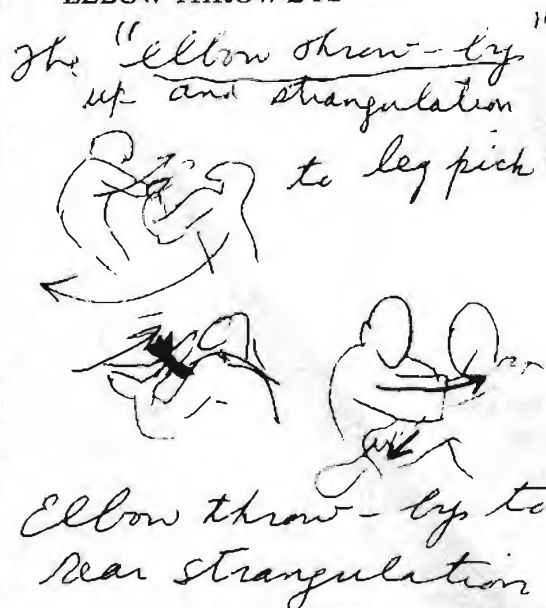 ELBOW THROW-BYS
The "elbow throw-bys"
up and strangulation
to leg pick
Elbow throw-bys to
rear strangulation